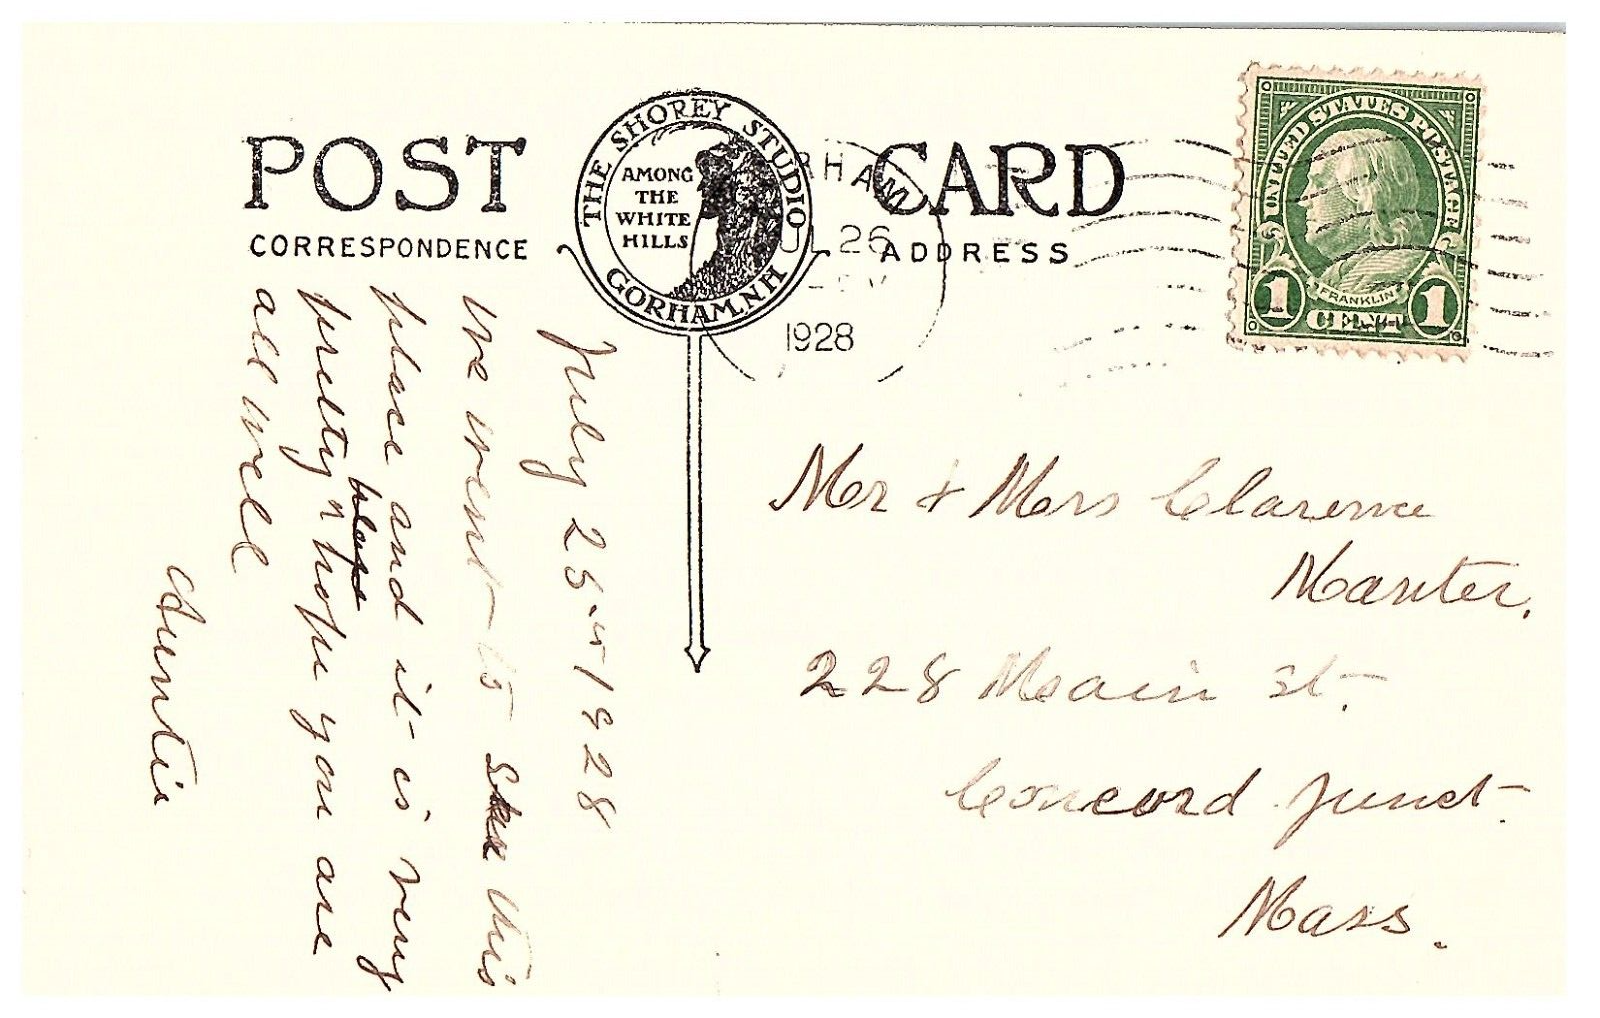 POST CARD
THE SHOREY STUDIO
AMONG
THE
WHITE
HILLS
GORHAM, N.H.
CORRESPONDENCE
ADDRESS
RHAM
JL 26
1928
UNITED STATES POSTAGE
FRANKLIN
1 CENT 1
July 25 - 1928
We went to See this
place and it is very
pretty place
hope you are
all well
Auntie
Mr + Mrs Clarence
Manter.
228 Main St.
Concord Junct.
Mass.